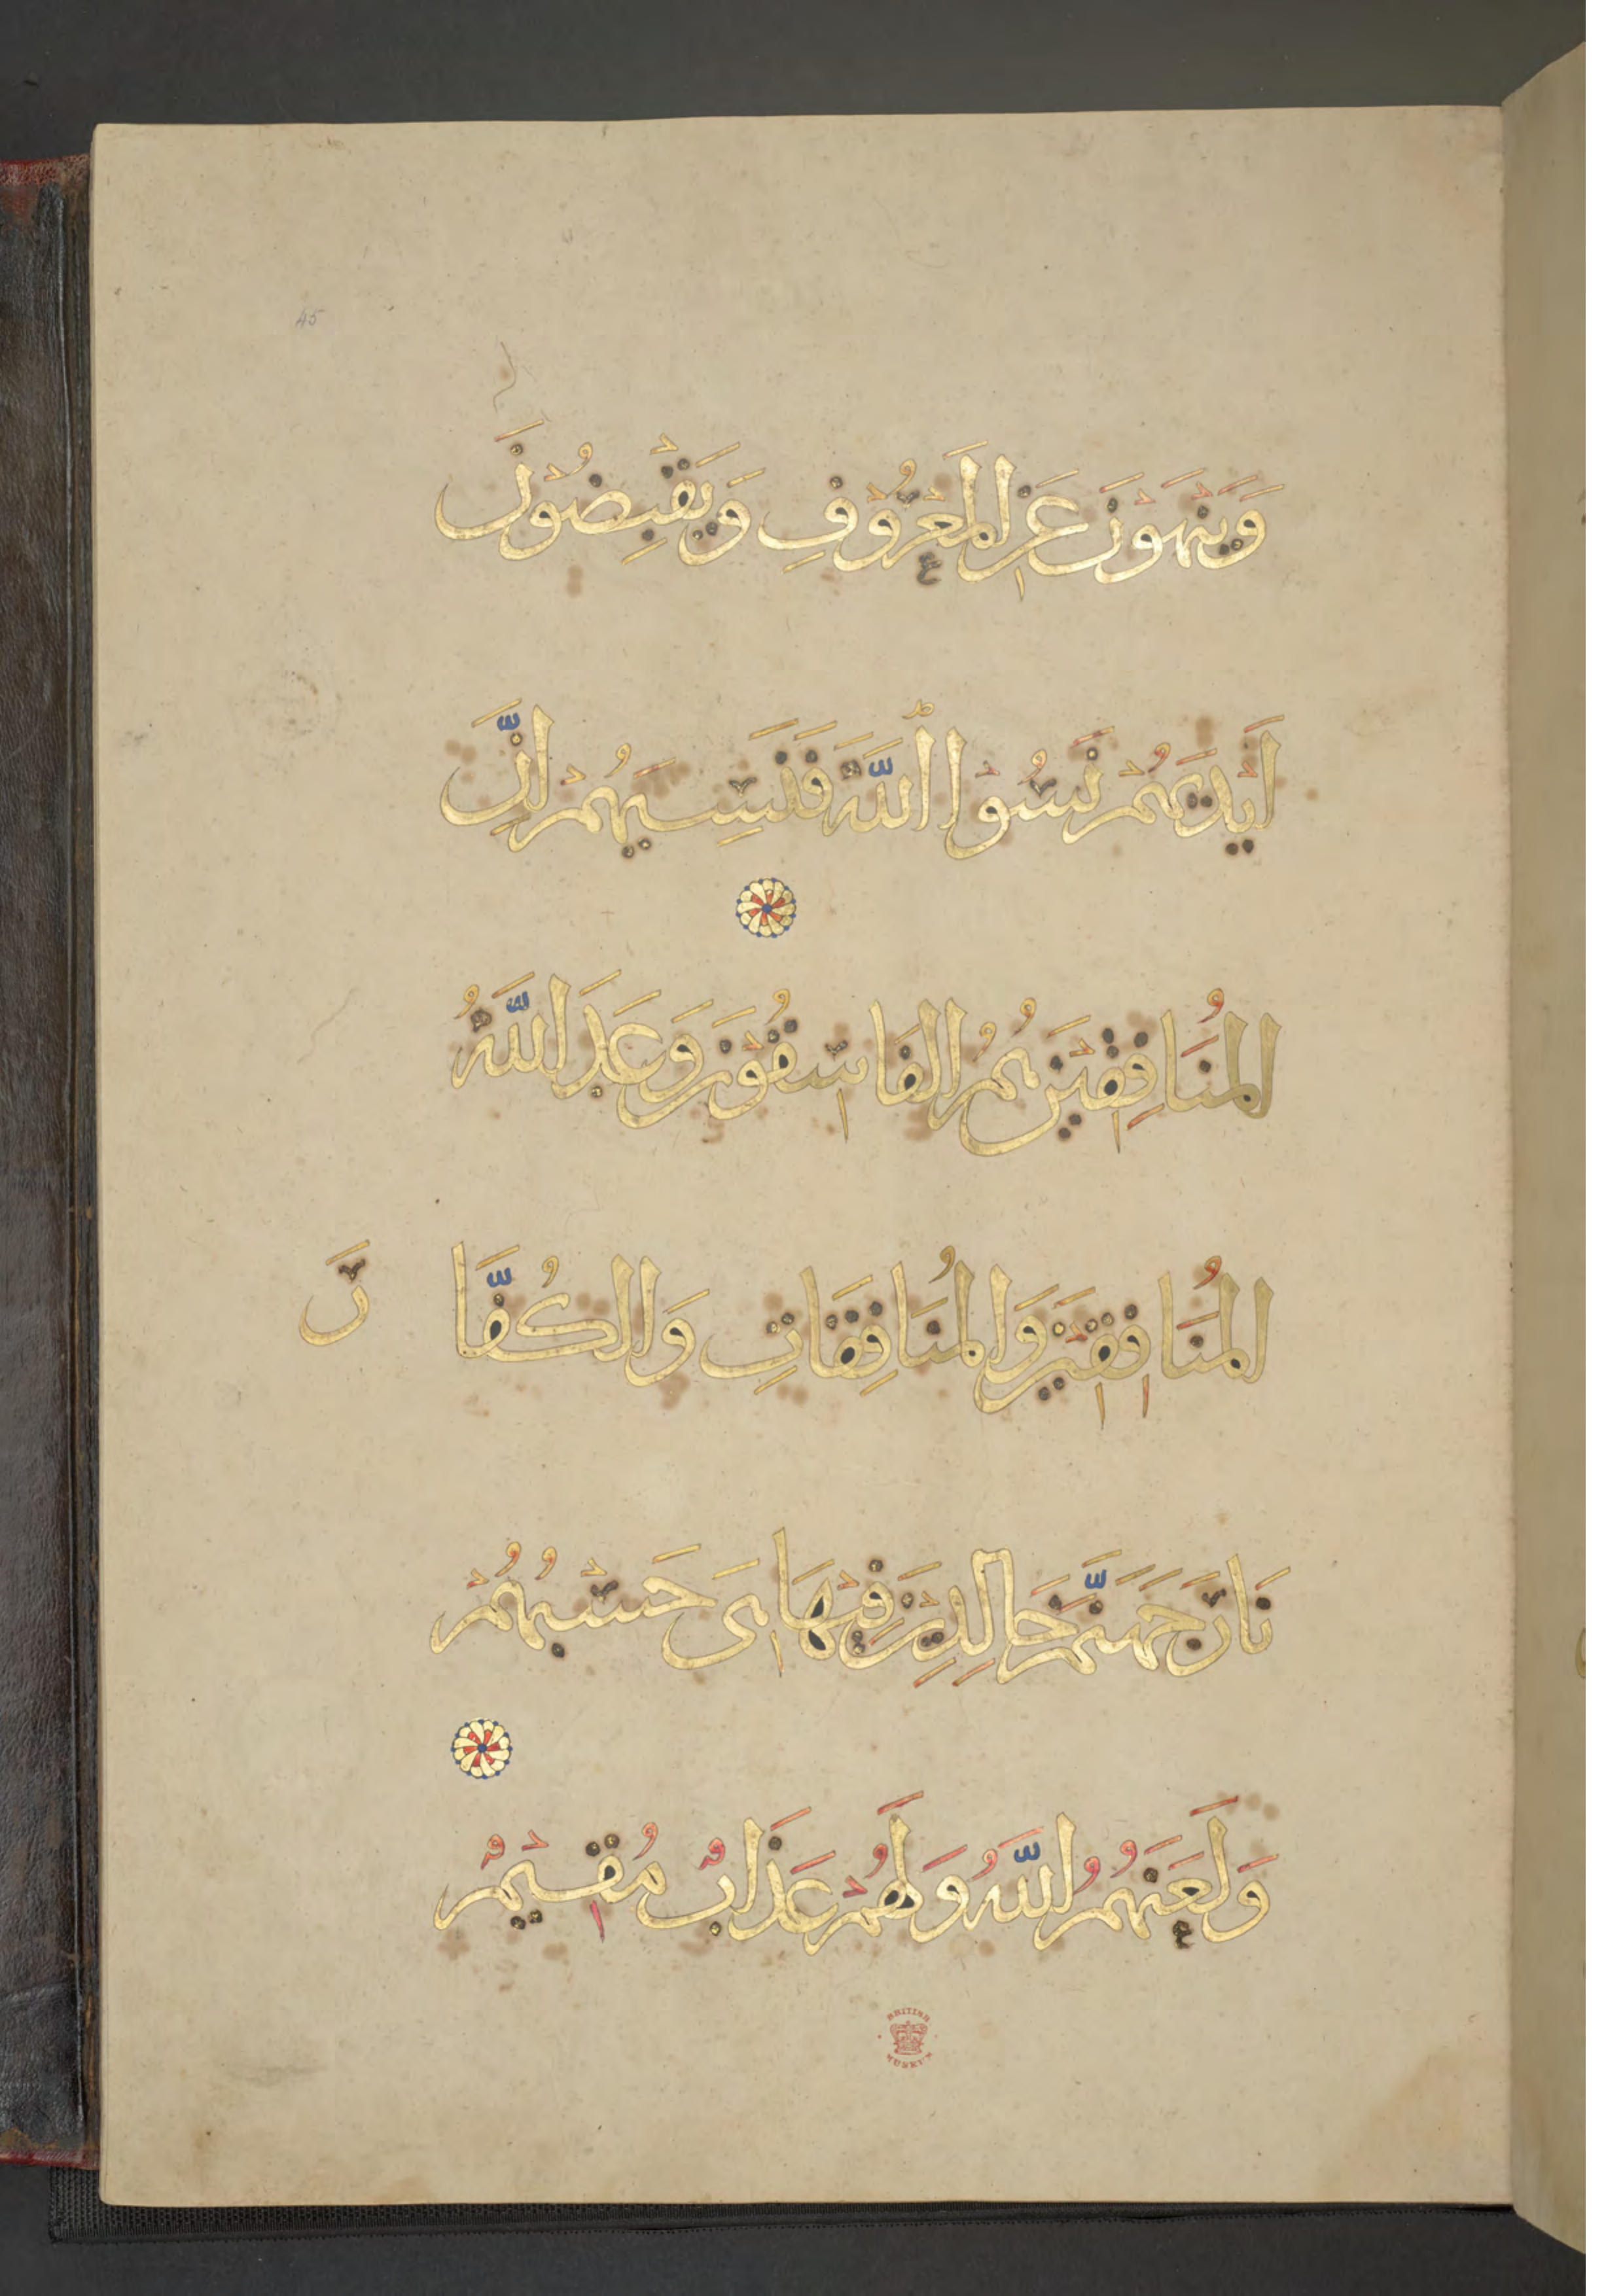 45
وَيَنْهَوْنَ عَنِ الْمَعْرُوفِ وَيَقْبِضُونَ
اَيْدِيَهُمْ نَسُوا اللّٰهَ فَنَسِيَهُمْ اِنَّ
الْمُنَافِقِيْنَ هُمُ الْفَاسِقُوْنَ وَعَدَ اللّٰهُ
الْمُنَافِقِيْنَ وَالْمُنَافِقَاتِ وَالْكُفَّا رَ
نَارَ جَهَنَّمَ خَالِدِيْنَ فِيْهَا هِىَ حَسْبُهُمْ
وَلَعَنَهُمُ اللّٰهُ وَلَهُمْ عَذَابٌ مُقِيْمٌ
BRITISH
MUSEUM